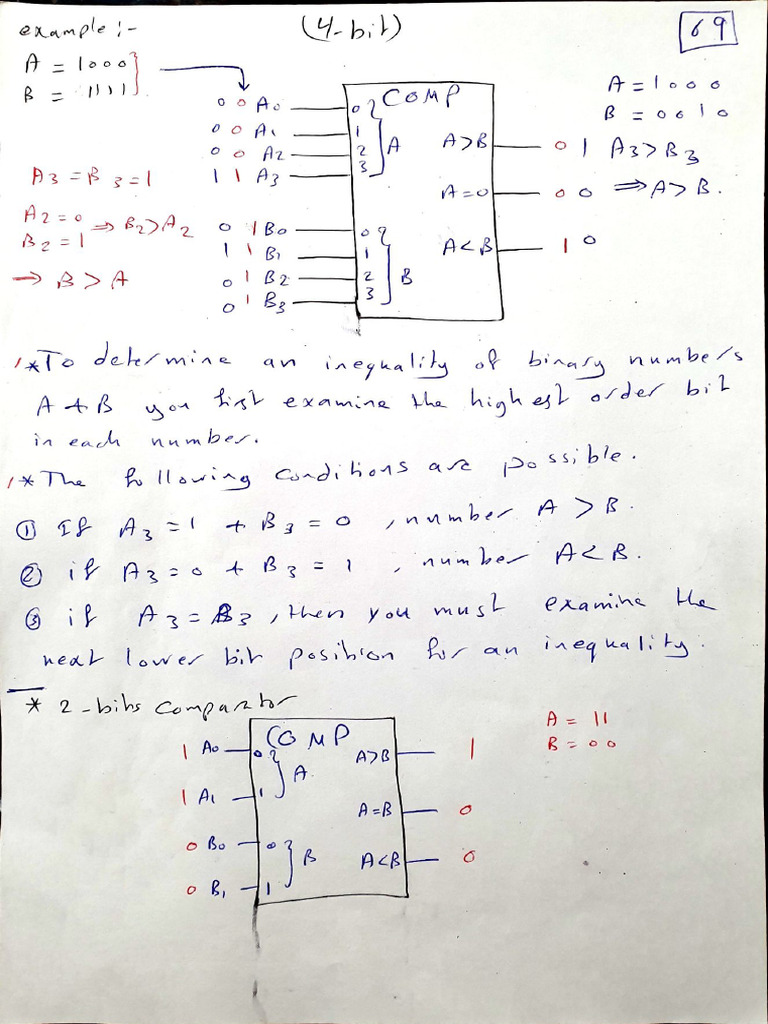 example:- (4-bit) 69
A = 1000
B = 1111
A = 1000
B = 0010
COMP
0 0 A0 0
0 0 A1 1
0 0 A2 2
1 1 A3 3
A
0 1 B0 0
1 1 B1 1
0 1 B2 2
0 1 B3 3
B
A>B 0 1 A3>B3
A=0 0 0 ⇒A>B.
A<B 1 0
A3 = B3 = 1
A2=0 ⇒ B2>A2
B2=1
→ B > A
*To determine an inequality of binary numbers
A + B you first examine the highest order bit
in each number.
*The following conditions are possible.
① If A3 =1 + B3 = 0 , number A > B.
② if A3 = 0 + B3 = 1 , number A<B.
③ if A3 = B3 , then you must examine the
next lower bit position for an inequality.
* 2-bits comparator
COMP
1 A0 0
1 A1 1
A.
0 B0 0
0 B1 1
B
A>B 1
A=B 0
A<B 0
A = 11
B = 00